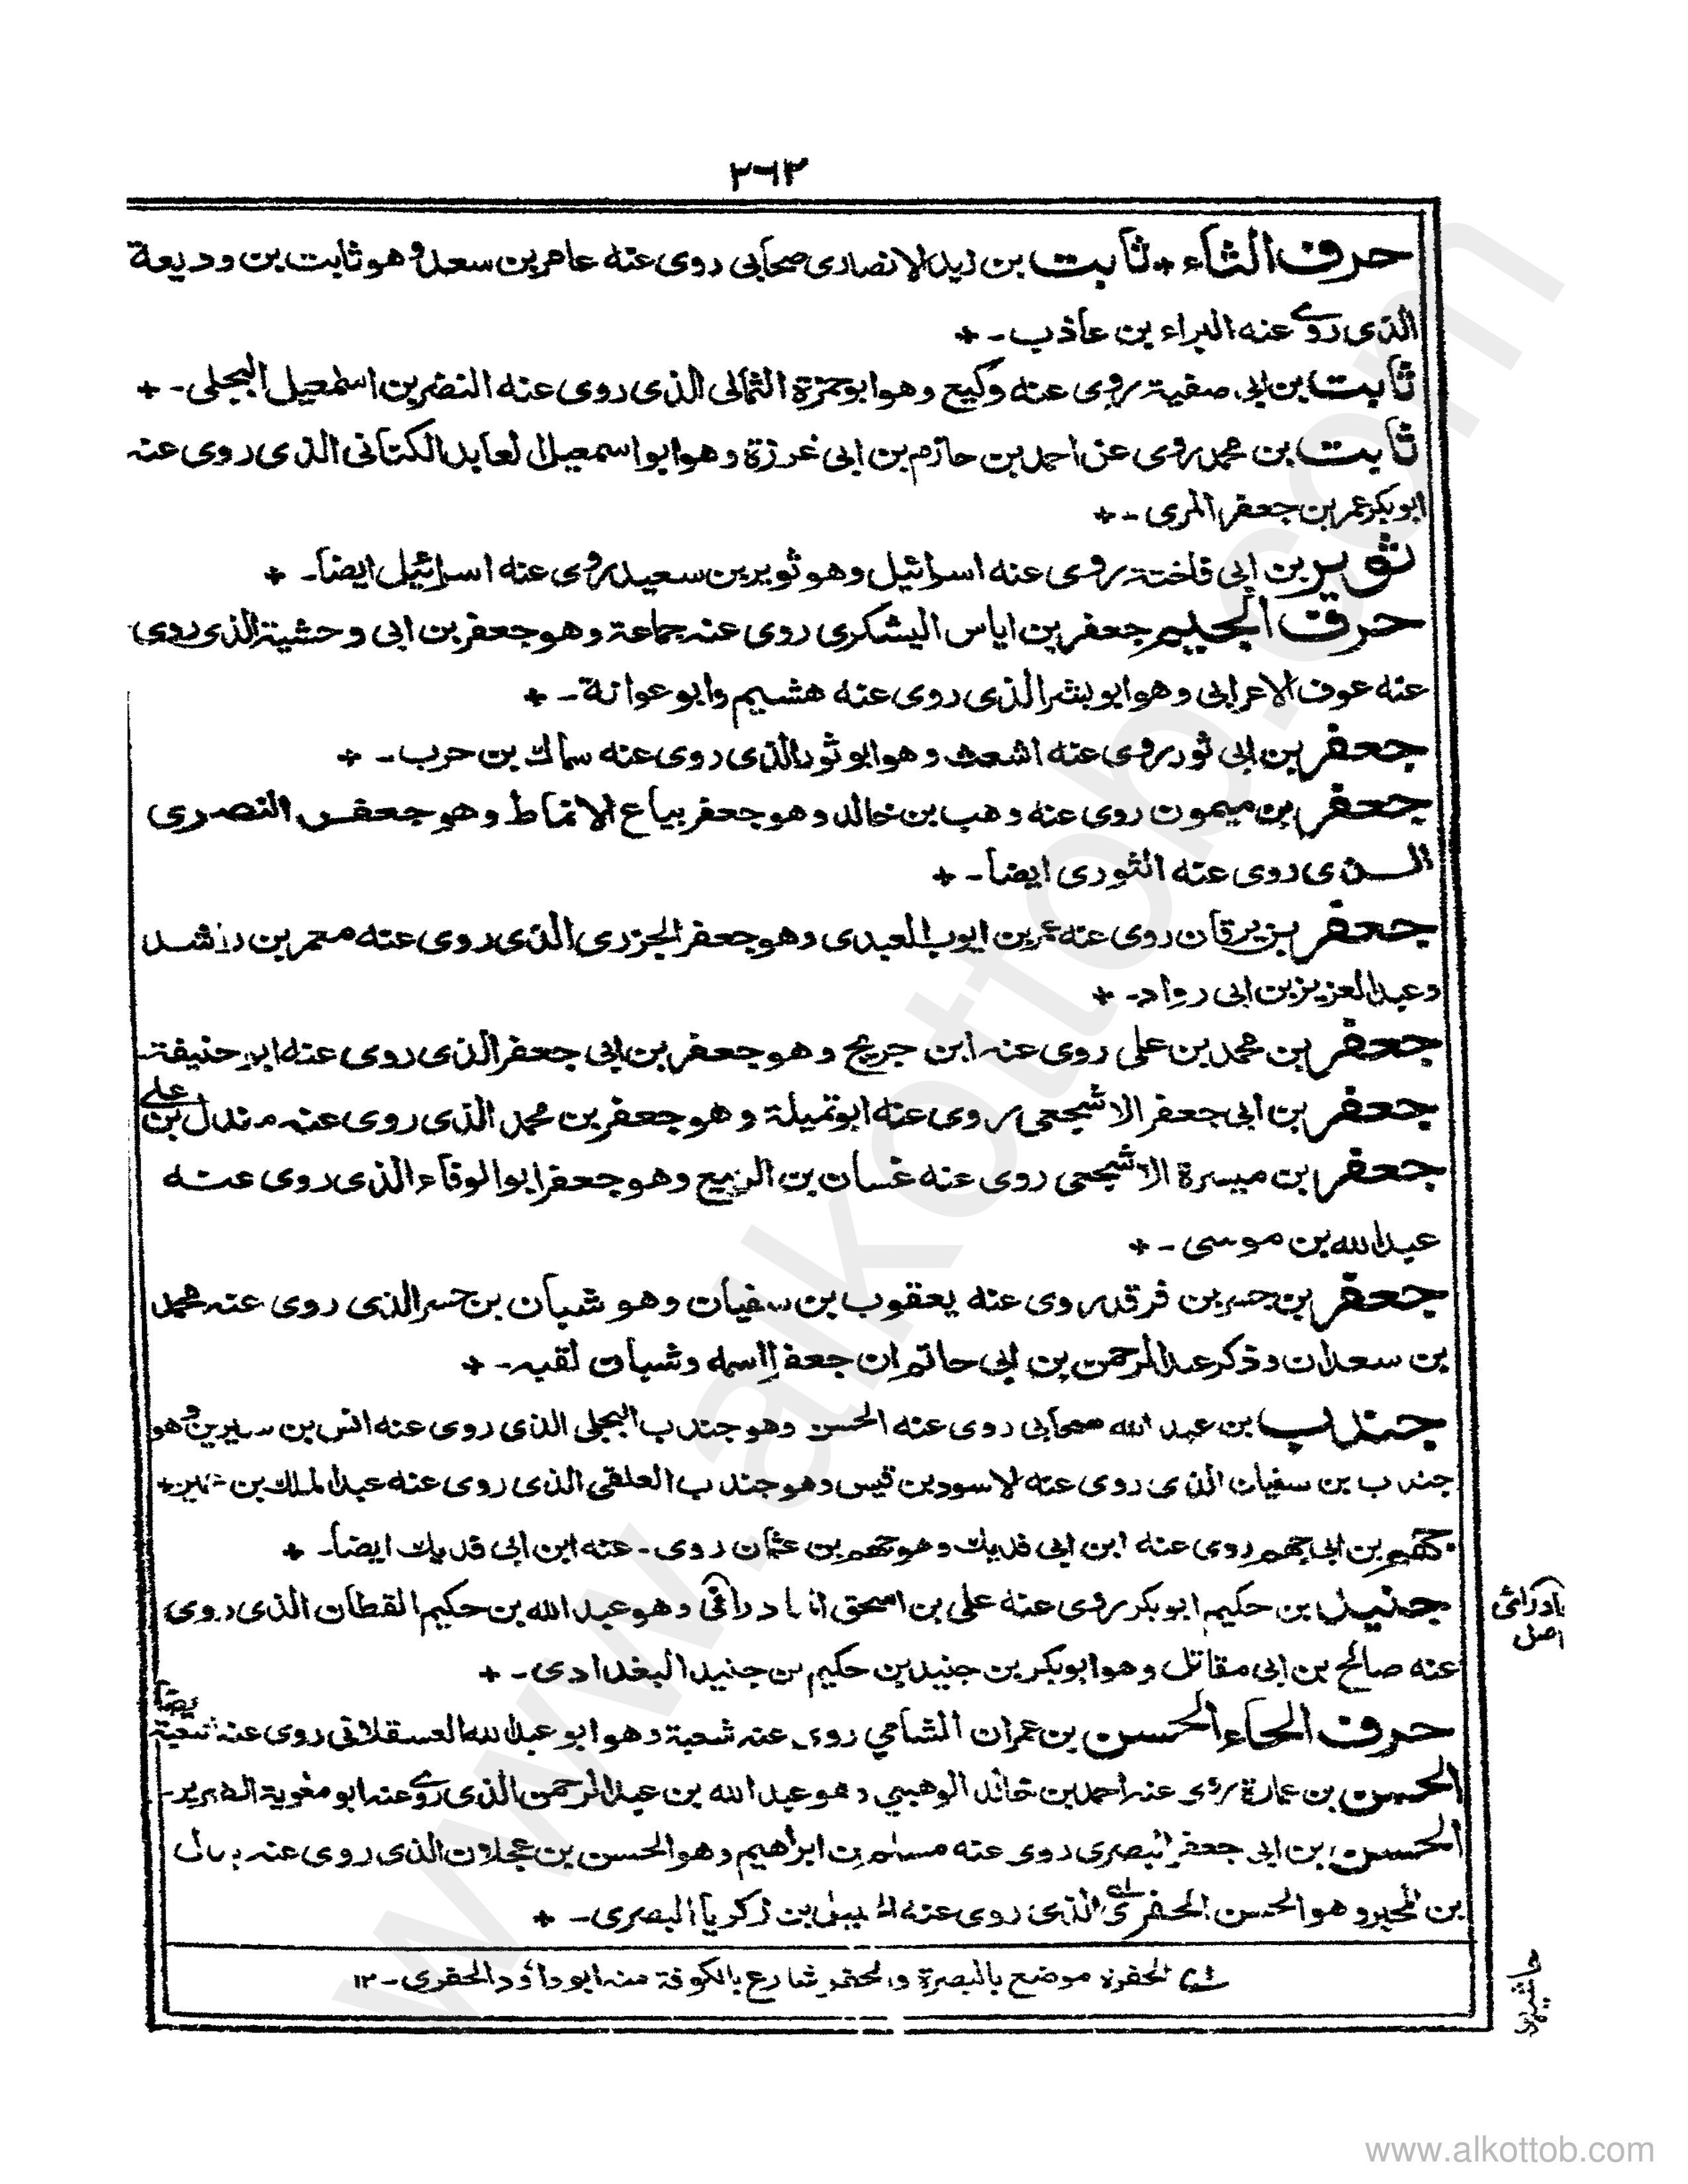 ٢٦٣
حرف الثاء + ثابت بن زيد الانصارى صحابى روى عنه عامر بن سعد وهو ثابت بن وديعة
الذى روى عنه البراء بن عاذب ـ +
ثابت بن ابى صفية روى عنه وكيع وهو ابو حمزة الثمالى الذى روى عنه النضر بن اسمعيل البجلى ـ +
ثابت بن محمد روى عن احمد بن حازم بن ابى غرزة وهو ابو اسمعيل العابد الكنانى الذى روى عنه
ابو بكر عمر بن جعفر المرى ـ +
ثوير بن ابى فاختة روى عنه اسرائيل وهو ثوير بن سعيد روى عنه اسرائيل ايضا ـ +
حرف الجيم جعفر بن اياس اليشكرى روى عنه جماعة وهو جعفر بن ابى وحشية الذى روى
عنه عوف الاعرابى وهو ابو بشر الذى روى عنه هشيم وابو عوانة ـ +
جعفر بن ابى ثور روى عنه اشعث وهو ابو ثور الذى روى عنه سماك بن حرب ـ +
جعفر بن ميمون روى عنه وهب بن خالد وهو جعفر بياع الانماط وهو جعفر النصرى
الذى روى عنه الثورى ايضا ـ +
جعفر بن برقان روى عنه عمر بن ايوب العبدى وهو جعفر الجزرى الذى روى عنه معمر بن راشد
وعبد العزيز بن ابى رواد ـ +
جعفر بن محمد بن على روى عنه ابن جريج وهو جعفر بن ابى جعفر الذى روى عنه ابو حنيفة
جعفر بن ابى جعفر الاشجعى روى عنه ابو تميلة وهو جعفر بن محمد الذى روى عنه مندل بن على
جعفر بن ميسرة الاشجعى روى عنه غسان بن الربيع وهو جعفر ابو الوفاء الذى روى عنه
عبد الله بن موسى ـ +
جعفر بن جسر بن فرقد روى عنه يعقوب بن سفيان وهو شبان بن جسر الذى روى عنه محمد
بن سعدان وذكر عبد الرحمن بن ابى حاتم ان جعفرا اسمه وشبان لقبه ـ +
جندب بن عبد الله صحابى روى عنه الحسن وهو جندب البجلى الذى روى عنه انس بن سيرين وهو
جندب بن سفيان الذى روى عنه الاسود بن قيس وهو جندب العلقى الذى روى عنه عبد الملك بن +
جهم بن ابى جهم روى عنه ابن ابى فديك وهو جهم بن عثمان روى ـ عنه ابن ابى فديك ايضا ـ +
جنيد بن حكيم ابو بكر روى عنه على بن اسحق المادرائى وهو عبد الله بن حكيم القطان الذى روى
مادرائى
اصل
عنه صالح بن ابى مقاتل وهو ابو بكر بن جنيد بن حكيم بن جنيد البغدادى ـ +
حرف الحاء الحسن بن عمران الشامي روى عنه شعبة وهو ابو عبد الله العسقلانى روى عنه شعبة ايضا
الحسن بن عمارة روى عنه احمد بن خالد الوهبي وهو عبد الله بن عبد الرحمن الذى روى عنه ابو معوية الضرير ـ
الحسن بن ابى جعفر البصرى روى عنه مسلم بن ابراهيم وهو الحسن بن عجلان الذى روى عنه بدل
بن المحبر وهو الحسن الحفرى الذى روى عنه بن زكريا البصرى ـ +
الحفرة موضع بالبصرة والحفر شارع بالكوفة منه ابو داؤد الحفرى ـ ١٢
حاشيه
www.alkottob.com
www.alkottob.com